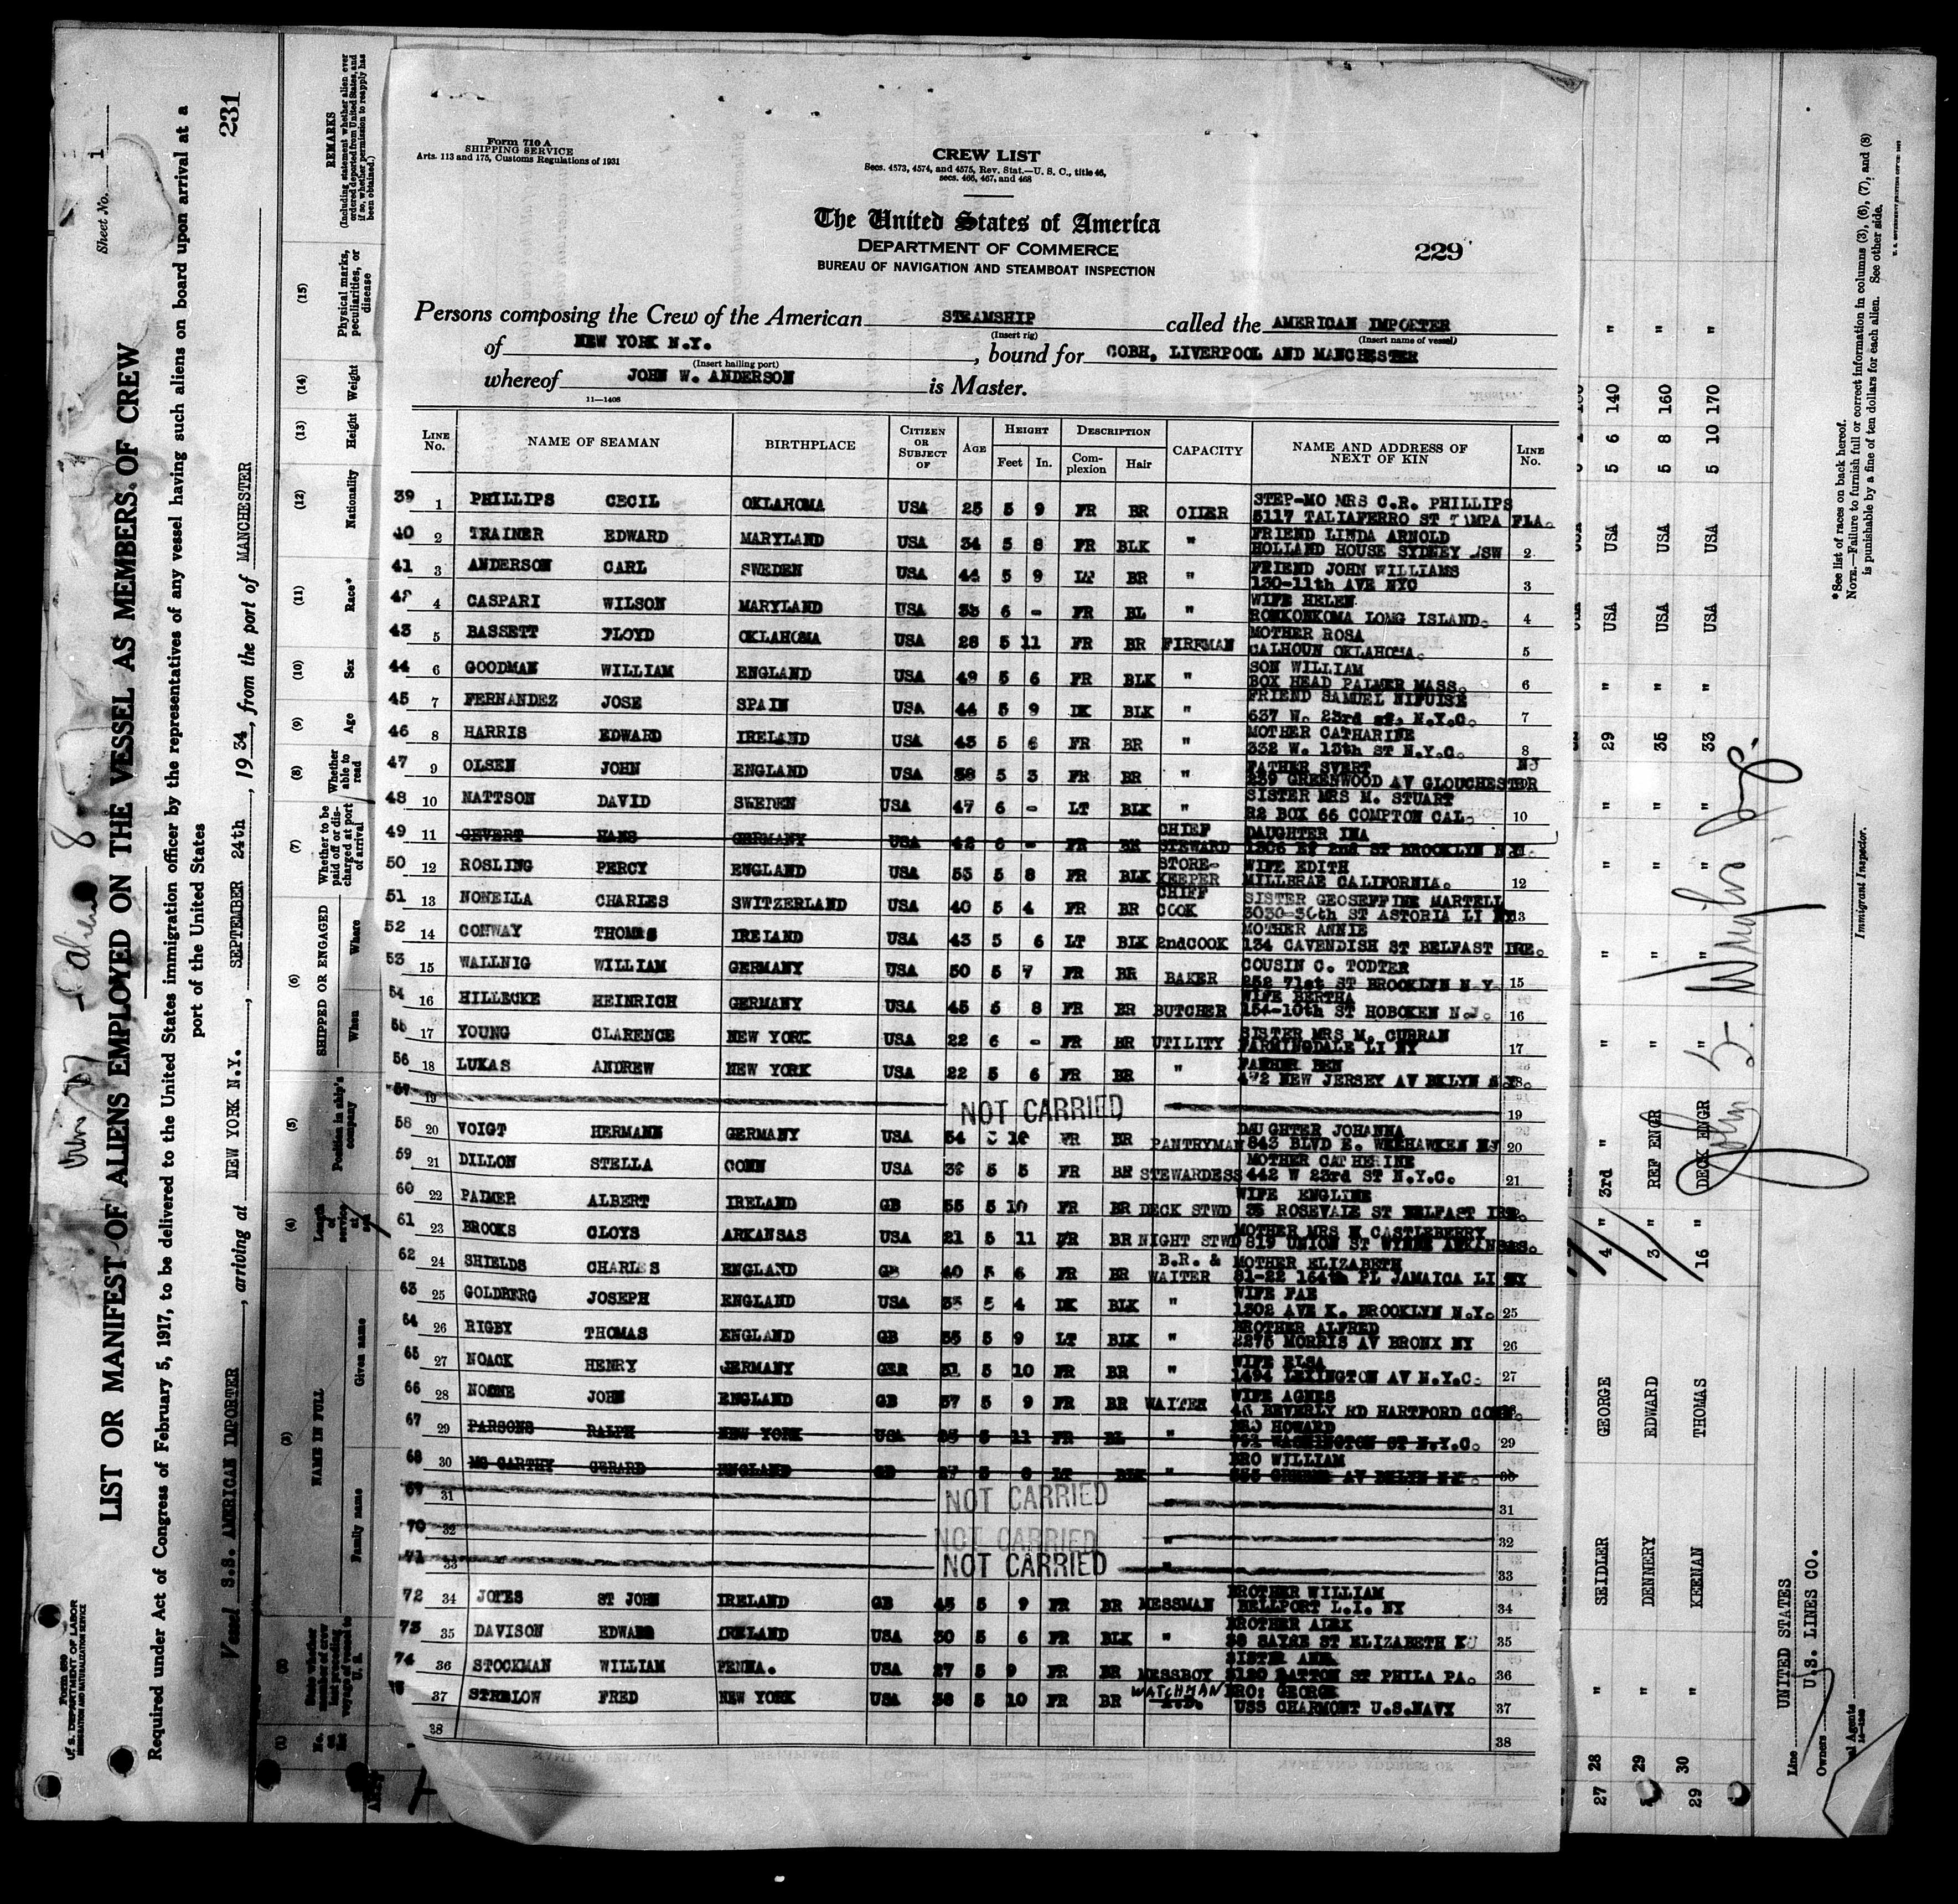 Form 710 A
SHIPPING SERVICE
Arts. 113 and 175, Customs Regulations of 1931
CREW LIST
Secs. 4573, 4574, and 4575, Rev. Stat.—U. S. C., title 46,
secs. 466, 467, and 468
The United States of America
DEPARTMENT OF COMMERCE
BUREAU OF NAVIGATION AND STEAMBOAT INSPECTION
229
Persons composing the Crew of the American STEAMSHIP called the AMERICAN IMPORTER
(Insert rig) (Insert name of vessel)
of NEW YORK N.Y. , bound for COBH, LIVERPOOL AND MANCHESTER
(Insert hailing port)
whereof JOHN W. ANDERSON is Master.
11—1408
LINE No. NAME OF SEAMAN BIRTHPLACE CITIZEN OR SUBJECT OF AGE HEIGHT Feet In. DESCRIPTION Complexion Hair CAPACITY NAME AND ADDRESS OF NEXT OF KIN LINE No.
39 1 PHILLIPS CECIL OKLAHOMA USA 25 5 9 FR BR OILER STEP-MO MRS C.R. PHILLIPS
5117 TALIAFERRO ST TAMPA FLA.
40 2 TRAINER EDWARD MARYLAND USA 34 5 8 FR BLK " FRIEND LINDA ARNOLD
HOLLAND HOUSE SYDNEY NSW 2
41 3 ANDERSON CARL SWEDEN USA 44 5 9 BR " FRIEND JOHN WILLIAMS
130-11th AVE NYC 3
42 4 CASPARI WILSON MARYLAND USA 6 - FR BL " WIFE HELEN
RONKONKOMA LONG ISLAND. 4
43 5 BASSETT FLOYD OKLAHOMA USA 28 5 11 FR BR FIREMAN MOTHER ROSA
CALHOUN OKLAHOMA. 5
44 6 GOODMAN WILLIAM ENGLAND USA 49 5 6 FR BLK " SON WILLIAM
BOX HEAD PALMER MASS. 6
45 7 FERNANDEZ JOSE SPAIN USA 44 5 9 DK BLK " FRIEND SAMUEL NIFUISE
637 W. 23rd st. N.Y.C. 7
46 8 HARRIS EDWARD IRELAND USA 43 5 6 FR BR " MOTHER CATHARINE
332 W. 15th ST N.Y.C. 8
47 9 OLSEN JOHN ENGLAND USA 38 5 3 FR BR " FATHER SVERT NJ
239 GREENWOOD AV GLOUCHESTER
48 10 NATTSON DAVID SWEDEN USA 47 6 - LT BLK " SISTER MRS M. STUART
R2 BOX 66 COMPTON CAL. 10
49 11 GEVERT HANS GERMANY USA 42 6 - FR BR CHIEF STEWARD DAUGHTER INA
2nd ST BROOKLYN
50 12 ROSLING PERCY ENGLAND USA 53 5 8 FR BLK STORE-KEEPER WIFE EDITH
MILLBRAE CALIFORNIA. 12
51 13 NONELLA CHARLES SWITZERLAND USA 40 5 4 FR BR CHIEF COOK SISTER GEOSEFFINE MARTELL
3030-36th ST ASTORIA LI NY 13
52 14 CONWAY THOMAS IRELAND USA 43 5 6 LT BLK 2ndCOOK MOTHER ANNIE
134 CAVENDISH ST BELFAST IRE.
53 15 WALLNIG WILLIAM GERMANY USA 30 5 7 FR BR BAKER COUSIN C. TODTER
252 71st ST BROOKLYN N.Y. 15
54 16 HILLECKE HEINRICH GERMANY USA 45 5 8 FR BR BUTCHER WIFE BERTHA
154-10th ST HOBOKEN N.J. 16
55 17 YOUNG CLARENCE NEW YORK USA 22 6 - FR BR UTILITY SISTER MRS M. CURRAN
FARMINGDALE LI NY 17
56 18 LUKAS ANDREW NEW YORK USA 22 5 6 FR BR " FATHER BEN
472 NEW JERSEY AV BKLYN N.Y. 18
57 19 NOT CARRIED 19
58 20 VOIGT HERMANN GERMANY USA 54 10 FR BR PANTRYMAN DAUGHTER JOHANNA
843 BLVD E. WEEHAWKEN NJ 20
59 21 DILLON STELLA CONN USA 5 5 FR BR STEWARDESS MOTHER CATHERINE
442 W 23rd ST N.Y.C. 21
60 22 PALMER ALBERT IRELAND GB 55 5 10 FR BR DECK STWD WIFE ENGLINE
35 ROSEVALE ST BELFAST IRE.
61 23 BROOKS CLOYS ARKANSAS USA 21 5 11 FR BR NIGHT STWD MOTHER MRS N CASTLEBERRY
819 UNION ST WYNNE ARKANSAS.
62 24 SHIELDS CHARLES ENGLAND GB 40 5 6 FR BR B.R. & WAITER MOTHER ELIZABETH
81-22 164th PL JAMAICA LI NY
63 25 GOLDBERG JOSEPH ENGLAND USA 35 5 4 DK BLK " WIFE FAE
1302 AVE K. BROOKLYN N.Y. 25
64 26 RIGBY THOMAS ENGLAND GB 35 5 9 LT BLK " BROTHER ALFRED
2275 MORRIS AV BRONX NY 26
65 27 NOACK HENRY GERMANY GER 31 5 10 FR BR " WIFE ELSA
1494 LEXINGTON AV N.Y.C. 27
66 28 NOONE JOHN ENGLAND GB 37 5 9 FR BR WAITER WIFE AGNES
46 BEVERLY RD HARTFORD CONN.
67 29 PARSONS RALPH NEW YORK USA 5 11 FR BL " BRO HOWARD
WASHINGTON ST N.Y.C. 29
68 30 MC CARTHY GERARD ENGLAND GB 27 5 LT BLK " BRO WILLIAM
AV BKLYN N.Y. 30
69 31 NOT CARRIED " 31
70 32 NOT CARRIED " 32
71 33 NOT CARRIED " 33
72 34 JONES ST JOHN IRELAND GB 45 5 9 FR BR MESSMAN BROTHER WILLIAM
BELLPORT L.I. NY 34
73 35 DAVISON EDWARD IRELAND USA 30 5 6 FR BLK " BROTHER ALEX
SAYRE ST ELIZABETH NJ 35
74 36 STOCKMAN WILLIAM PENNA. USA 27 5 9 FR BR MESSBOY SISTER ANN
ST PHILA PA. 36
75 37 STRELOW FRED NEW YORK USA 38 5 10 FR BR WATCHMAN BRO: GEORGE
USS CHARMONT U.S.NAVY 37
38 38
Sheet No. 1
231
LIST OR MANIFEST OF ALIENS EMPLOYED ON THE VESSEL AS MEMBERS OF CREW
Required under Act of Congress of February 5, 1917, to be delivered to the United States immigration officer by the representatives of any vessel having such aliens on board upon arrival at a
port of the United States
Vessel S.S. AMERICAN IMPORTER , arriving at NEW YORK N.Y. , SEPTEMBER 24th , 1934, from the port of MANCHESTER
Form 680
U. S. DEPARTMENT OF LABOR
IMMIGRATION AND NATURALIZATION SERVICE
(1) No. on list
(3) NAME IN FULL Family name Given name
(4) Length of service at sea
(5) Position in ship's company
(6) SHIPPED OR ENGAGED When Where
(7) Whether to be paid off or discharged at port of arrival
(8) Whether able to read
(9) Age
(10) Sex
(11) Race*
(12) Nationality
(13) Height
(14) Weight
(15) Physical marks, peculiarities, or disease
REMARKS
(Including statement whether alien ever ordered deported from United States, and if so, whether permission to reapply has been obtained.)
27 28 " SEIDLER GEORGE 4 " 3rd " " " 29 " USA 5 6 140 "
29 " DENNERY EDWARD 3 " REF ENGR " " " 35 " USA 5 8 160 "
29 30 " KEENAN THOMAS 16 " DECK ENGR " " " 33 " USA 5 10 170 "
Line UNITED STATES
Owners U.S. LINES CO.
Immigrant Inspector.
*See list of races on back hereof.
NOTE.—Failure to furnish full or correct information in columns (3), (6), (7), and (8)
is punishable by a fine of ten dollars for each alien. See other side.